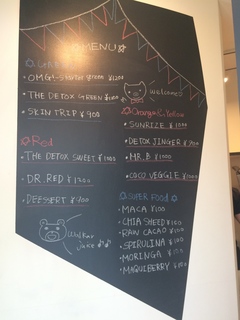 MENU
Green
OMG!-Shorter green ¥1200
THE DETOX GREEN ¥1100
SKIN TRIP ¥900
Red
THE DETOX SWEET ¥1100
DR. RED ¥1200
DEESSERT ¥900
Juice
welcome!
Orange & Yellow
SUNRIZE ¥1000
DETOX JINGER ¥900
MR. B ¥1000
COCO VEGGIE ¥1000
SUPER FOOD
MACA ¥100
CHIA SHEED ¥100
RAW CACAO ¥100
SPIRULINA ¥100
MORINGA ¥100
MAQUIBERRY ¥100